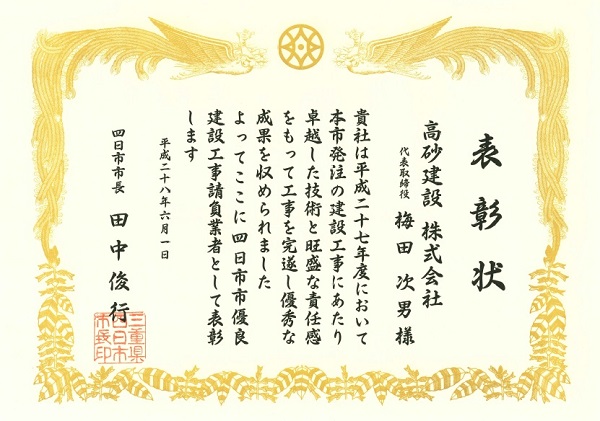 表彰状
高砂建設 株式会社
代表取締役 梅田 次男 様
貴社は平成二十七年度において
本市発注の建設工事にあたり
卓越した技術と旺盛な責任感
をもって工事を完遂し優秀な
成果を収められました
よってここに四日市市優良
建設工事請負業者として表彰
します
平成二十八年六月一日
四日市市長 田中俊行
三重県
四日市
市長印